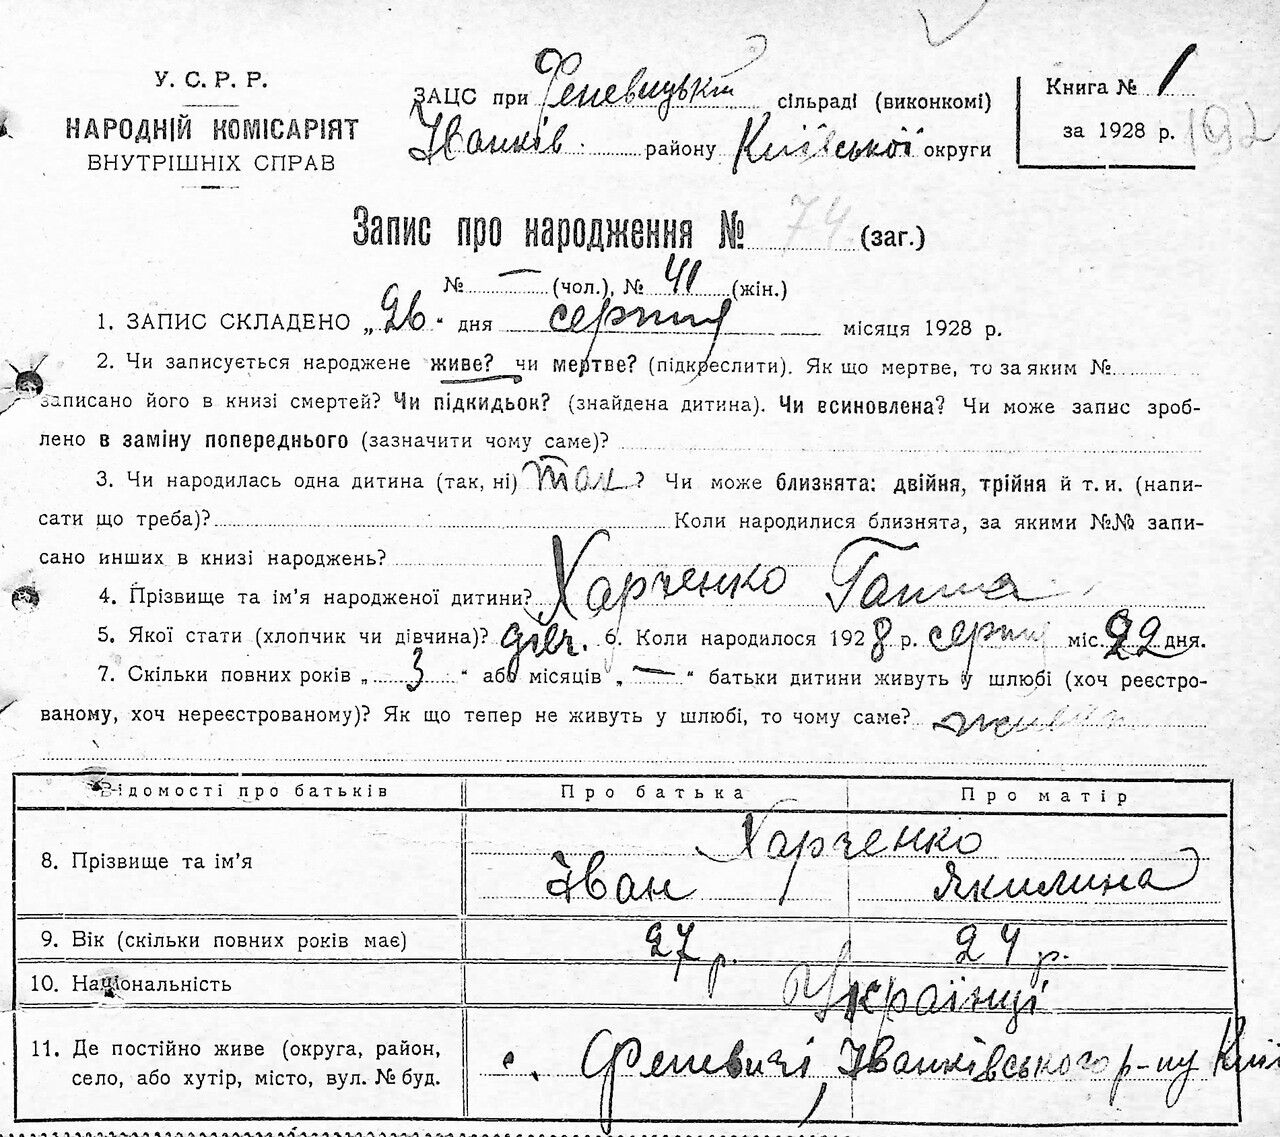 У. С. Р. Р.
НАРОДНІЙ КОМІСАРІЯТ
ВНУТРІШНІХ СПРАВ
ЗАЦС при Феневицькій сільраді (виконкомі)
Іванків району Київської округи
Книга № 1
за 1928 р. 192
Запис про народження № 74 (заг.)
№ — (чол.), № 41 (жін.)
1. ЗАПИС СКЛАДЕНО „26“ дня серпня місяця 1928 р.
2. Чи записується народжене живе? чи мертве? (підкреслити). Як що мертве, то за яким №
записано його в книзі смертей? Чи підкидьок? (знайдена дитина). Чи всиновлена? Чи може запис зроб-
лено в заміну попереднього (зазначити чому саме)?
3. Чи народилась одна дитина (так, ні) так? Чи може близнята: двійня, трійня й т. и. (напи-
сати що треба)? Коли народилися близнята, за якими №№ запи-
сано инших в книзі народжень?
4. Прізвище та ім’я народженої дитини? Харченко Ганна
5. Якої стати (хлопчик чи дівчина)? дівч. 6. Коли народилося 1928 р. серпня міс. 22 дня.
7. Скільки повних років „ 3 “ або місяців „ — “ батьки дитини живуть у шлюбі (хоч реєстро-
ваному, хоч нереєстрованому)? Як що тепер не живуть у шлюбі, то чому саме? живуть
Відомості про батьків Про батька Про матір
Харченко
8. Прізвище та ім’я Іван Якилина
9. Вік (скільки повних років має) 27 р. 24 р.
10. Національність Українці
11. Де постійно живе (округа, район,
село, або хутір, місто, вул. № буд. с. Феневичі, Іванківського р-ну Киї